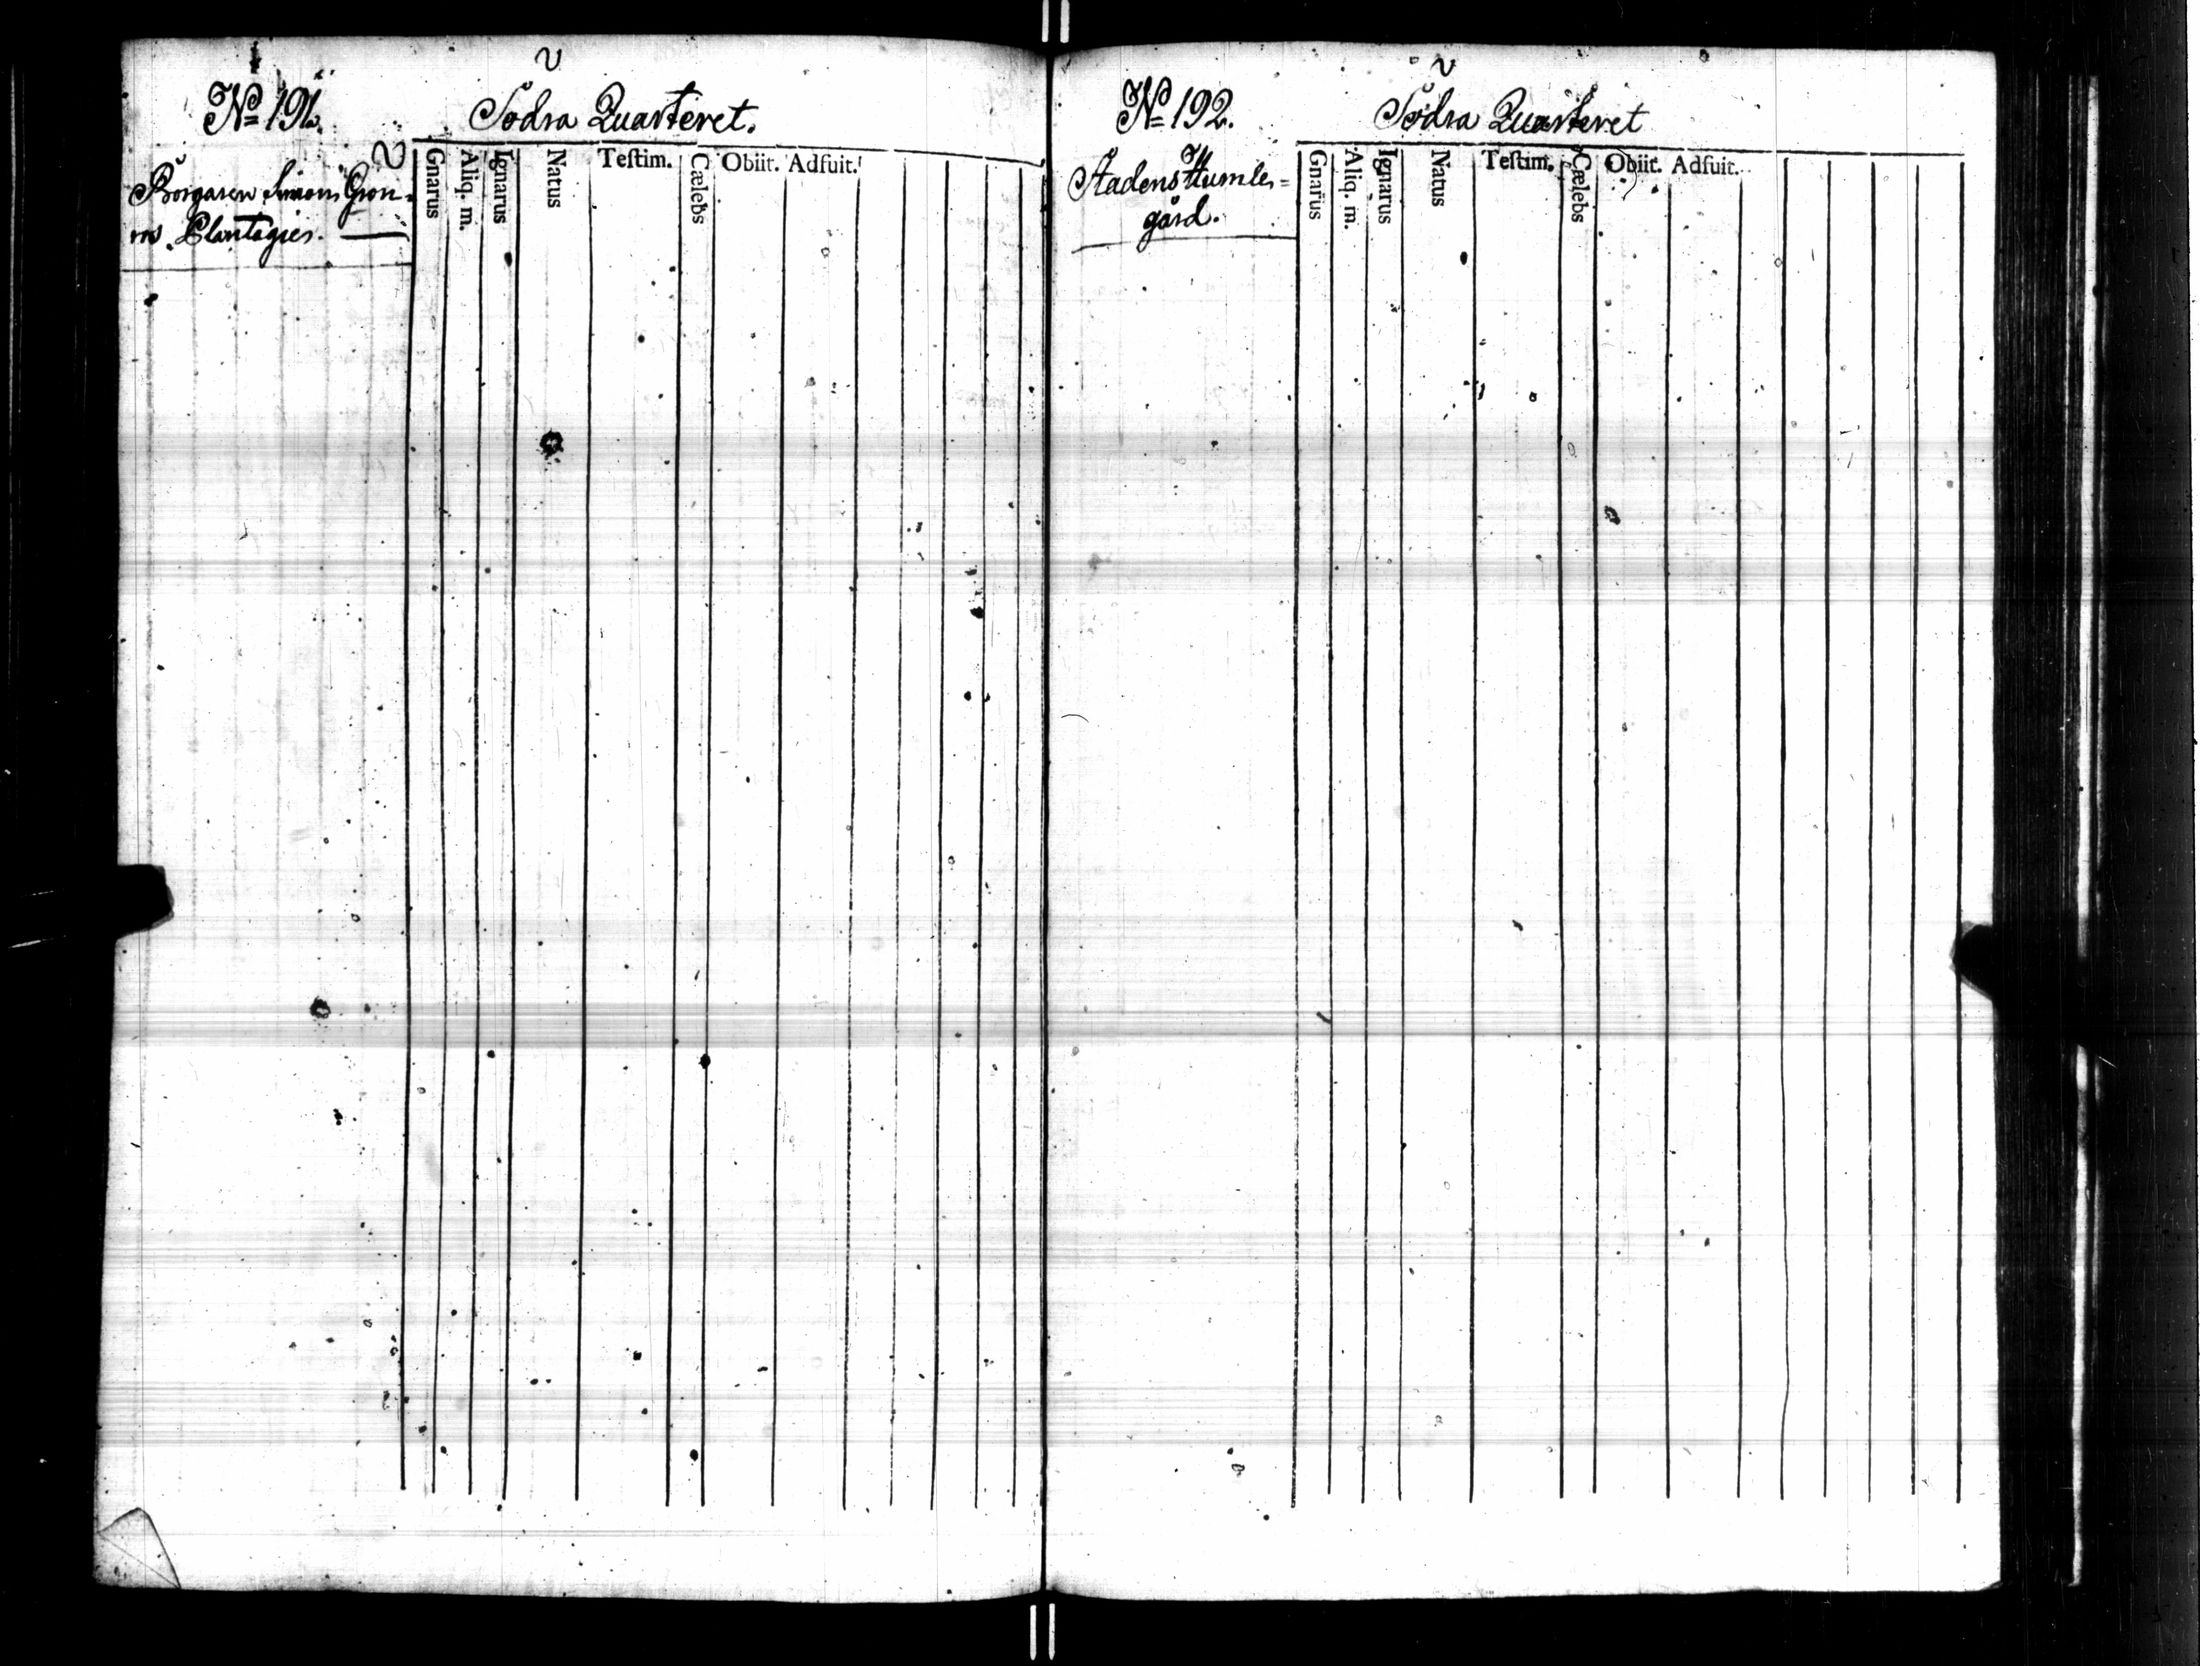 Nº 191.
Södra Quarteret.
Borgaren Simons Grön=
ns Plantagier.
Gnarus
Aliq. m.
Ignarus
Natus
Teſtim.
Cælebs
Obiit. Adfuit.
Nº 192.
Södra Quarteret
Stadens Humle=
gård.
Gnarus
Aliq. m.
Ignarus
Natus
Teſtim.
Cælebs
Obiit. Adfuit.